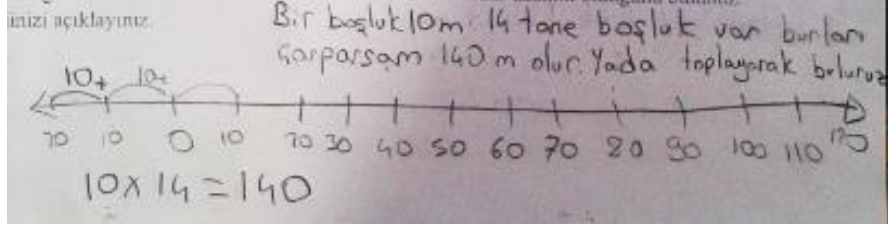 inizi açıklayınız.
Bir boşluk 10m. 14 tane boşluk var bunları
çarparsam 140 m olur. Yada toplayarak buluruz
10+ 10+
20 10 0 10 20 30 40 50 60 70 80 90 100 110 120
10x14=140